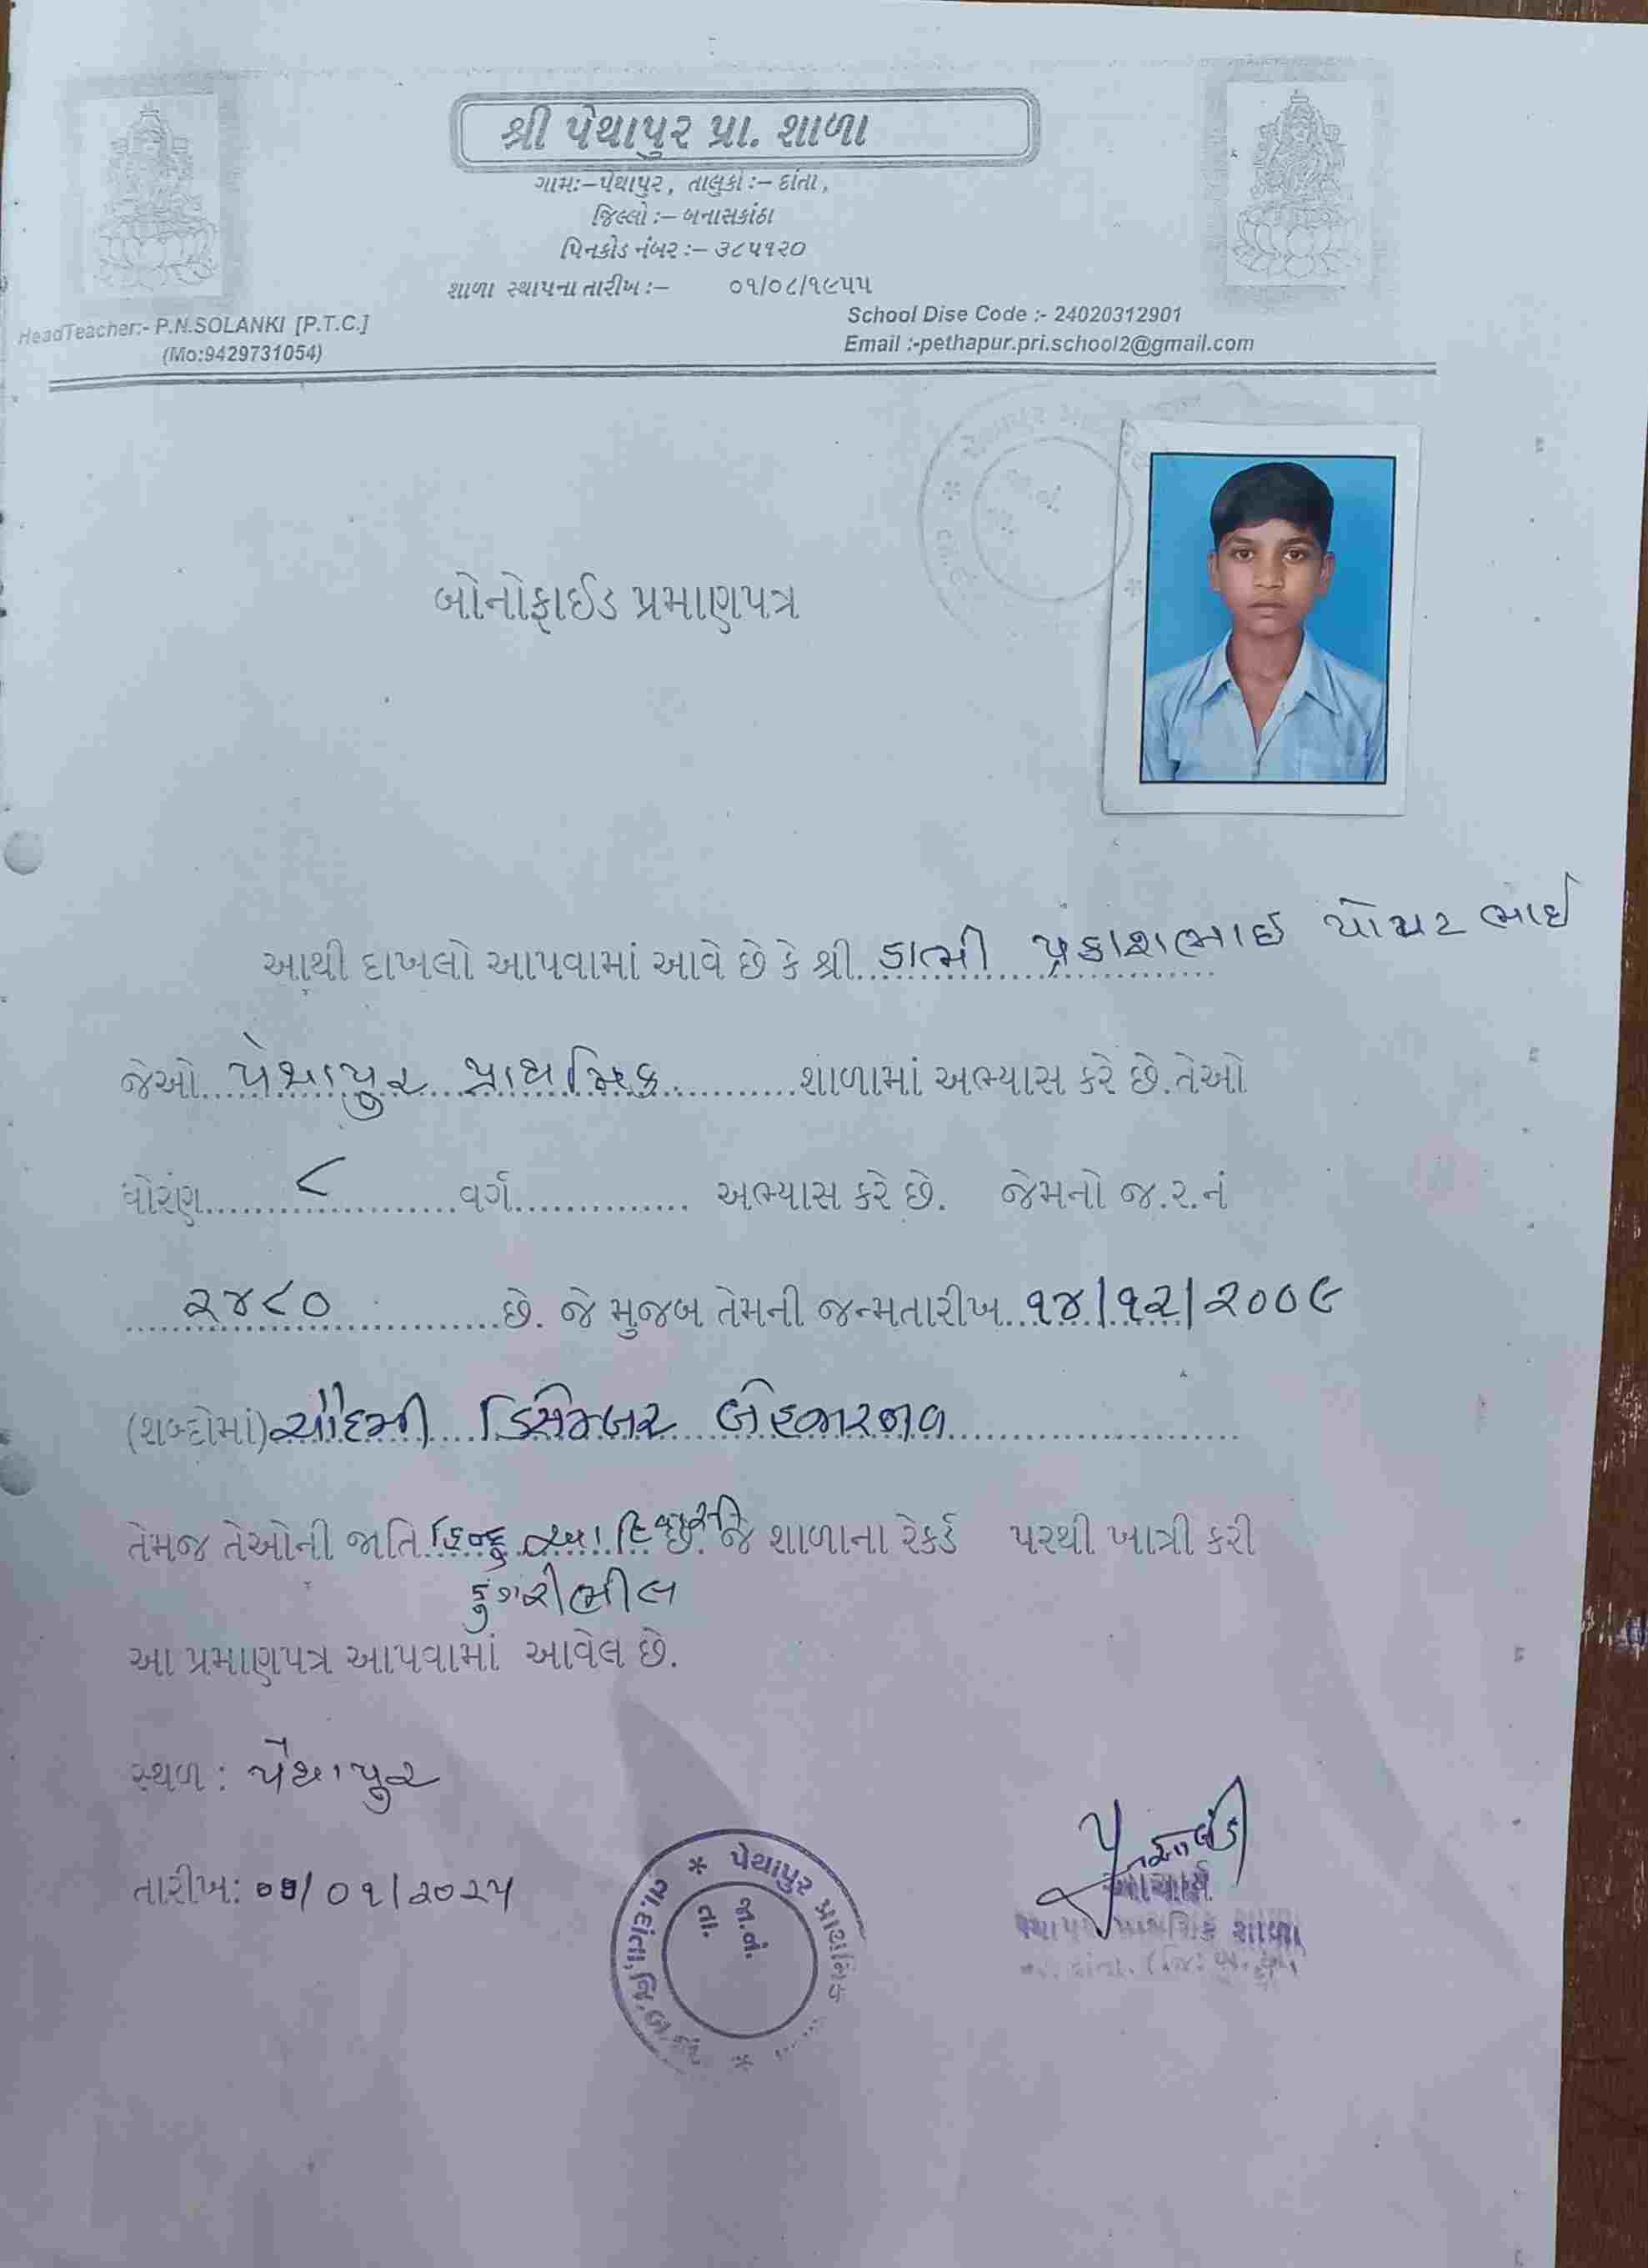 શ્રી પેથાપુર પ્રા. શાળા
ગામઃ–પેથાપુર, તાલુકો :– દાંતા,
જિલ્લો :– બનાસકાંઠા
પિનકોડ નંબર :– ૩૮૫૧૨૦
શાળા સ્થાપના તારીખ :– ૦૧/૦૮/૧૯૫૫
HeadTeacher:- P.N.SOLANKI [P.T.C.]
(Mo:9429731054)
School Dise Code :- 24020312901
Email :-pethapur.pri.school2@gmail.com
બોનોફાઈડ પ્રમાણપત્ર
આથી દાખલો આપવામાં આવે છે કે શ્રી. ડાભી પ્રકાશભાઈ પોપટ ભાઈ
જેઓ. પેથાપુર પ્રાથમિક શાળામાં અભ્યાસ કરે છે.તેઓ
ધોરણ ૮ વર્ગ અભ્યાસ કરે છે. જેમનો જ.ર.નં
૨૪૮૦ છે. જે મુજબ તેમની જન્મતારીખ ૧૪/૧૨/૨૦૦૯
(શબ્દોમાં) ચૌદમી ડિસેમ્બર બેહજારનવ
તેમજ તેઓની જાતિ હિન્દુ આદિવાસી છે. જે શાળાના રેકર્ડ પરથી ખાત્રી કરી
ડુંગરીભીલ
આ પ્રમાણપત્ર આપવામાં આવેલ છે.
સ્થળ : પેથાપુર
તારીખ: /૦૧/૨૦૨૫
* પેથાપુર પ્રાથમિક
તા.દાંતા, જિ.
જા.નં.
તા.
આચાર્ય
પેથાપુર પ્રાથમિક શાળા